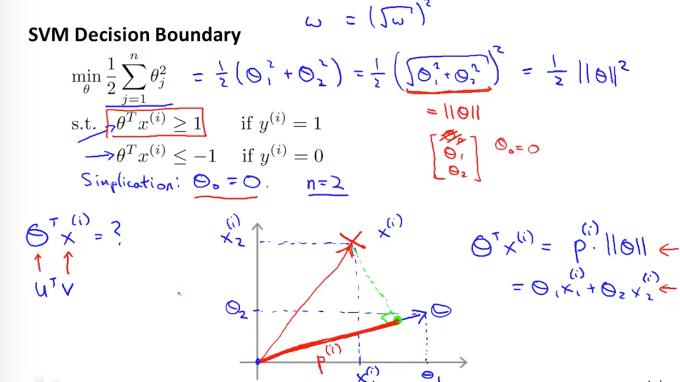 ω = (√ω)²
SVM Decision Boundary
min_θ 1/2 ∑_{j=1}^{n} θ_j² = 1/2 (θ₁² + θ₂²) = 1/2 (√(θ₁² + θ₂²))² = 1/2 ||θ||²
= ||θ||
s.t. θᵀx⁽ⁱ⁾ ≥ 1 if y⁽ⁱ⁾ = 1
θᵀx⁽ⁱ⁾ ≤ −1 if y⁽ⁱ⁾ = 0
θ₀
θ₁
θ₂
θ₀ = 0
Simplication: θ₀ = 0 n=2
θᵀx⁽ⁱ⁾ = ?
uᵀv
x₂⁽ⁱ⁾
x⁽ⁱ⁾
θ₂
θ
p⁽ⁱ⁾
x₁⁽ⁱ⁾
θ₁
θᵀx⁽ⁱ⁾ = p⁽ⁱ⁾ · ||θ|| ←
= θ₁x₁⁽ⁱ⁾ + θ₂x₂⁽ⁱ⁾ ←